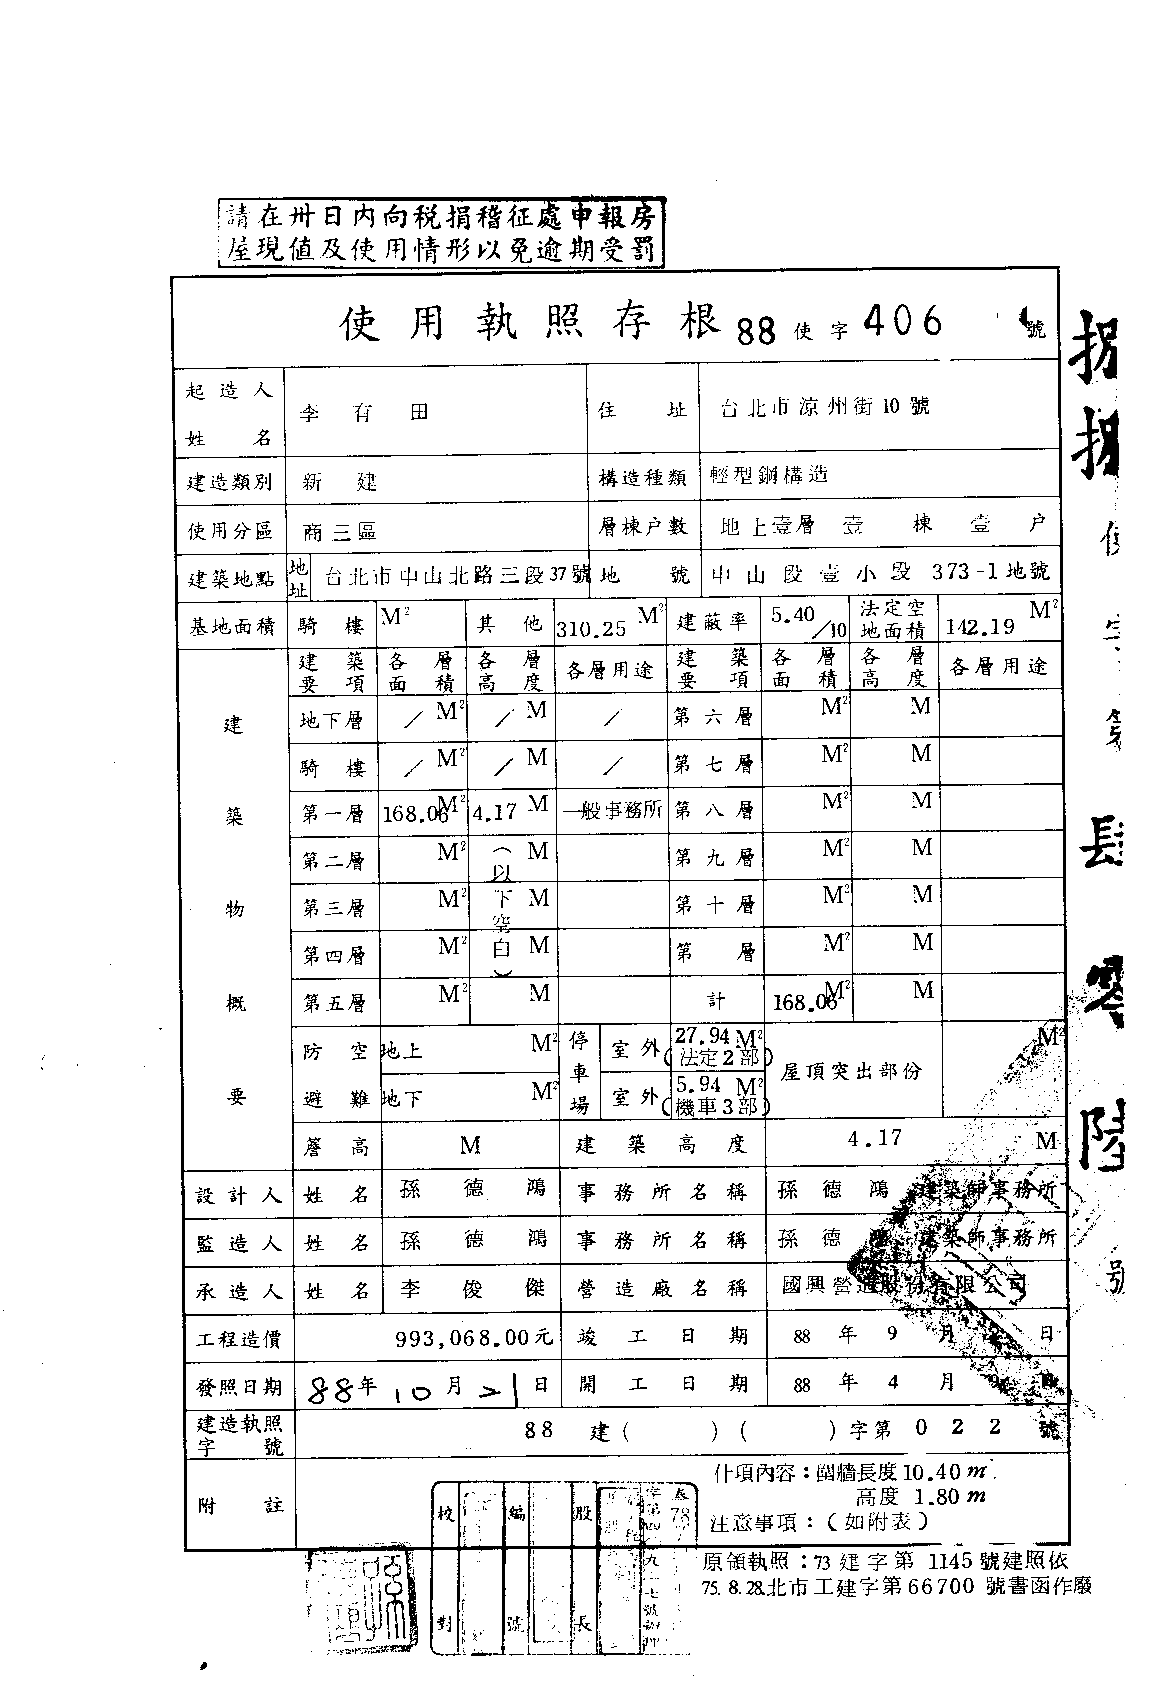 請在卅日內向稅捐稽征處申報房
屋現值及使用情形以免逾期受罰
使用執照存根 88 使字 406 號
起造人姓名 李有田 住址 台北市涼州街10號
建造類別 新建 構造種類 輕型鋼構造
使用分區 商三區 層棟户數 地上壹層壹棟壹户
建築地點 地址 台北市中山北路三段37號 地號 中山段壹小段 373-1地號
基地面積 騎樓 M² 其他 310.25 M² 建蔽率 5.40/10 法定空地面積 142.19 M²
建築物概要
建築要項 各層面積 各層高度 各層用途 建築要項 各層面積 各層高度 各層用途
地下層 / M² / M / 第六層 M² M
騎樓 / M² / M / 第七層 M² M
第一層 168.06 M² 4.17 M 一般事務所 第八層 M² M
第二層 M² M 第九層 M² M
第三層 M² M 第十層 M² M
第四層 M² M 第層 M² M
第五層 M² M 計 168.06 M² M
(以下空白)
防空避難 地上 M² 停車場 室外 27.94 M² (法定2部) 屋頂突出部份 M²
地下 M² 室外 5.94 M² (機車3部)
簷高 M 建築高度 4.17 M
設計人 姓名 孫德鴻 事務所名稱 孫德鴻建築師事務所
監造人 姓名 孫德鴻 事務所名稱 孫德鴻建築師事務所
承造人 姓名 李俊傑 營造廠名稱 國興營造股份有限公司
工程造價 993,068.00元 竣工日期 88年9月 日
發照日期 88年10月21日 開工日期 88年4月
建造執照字號 88 建( )( )字第 022 號
附註 什項內容：圍牆長度10.40m
高度 1.80m
注意事項：(如附表)
原領執照：73 建字第 1145號建照依
75.8.28.北市工建字第66700 號書函作廢
校對 編號 股長
捌捌使字第肆零陸號